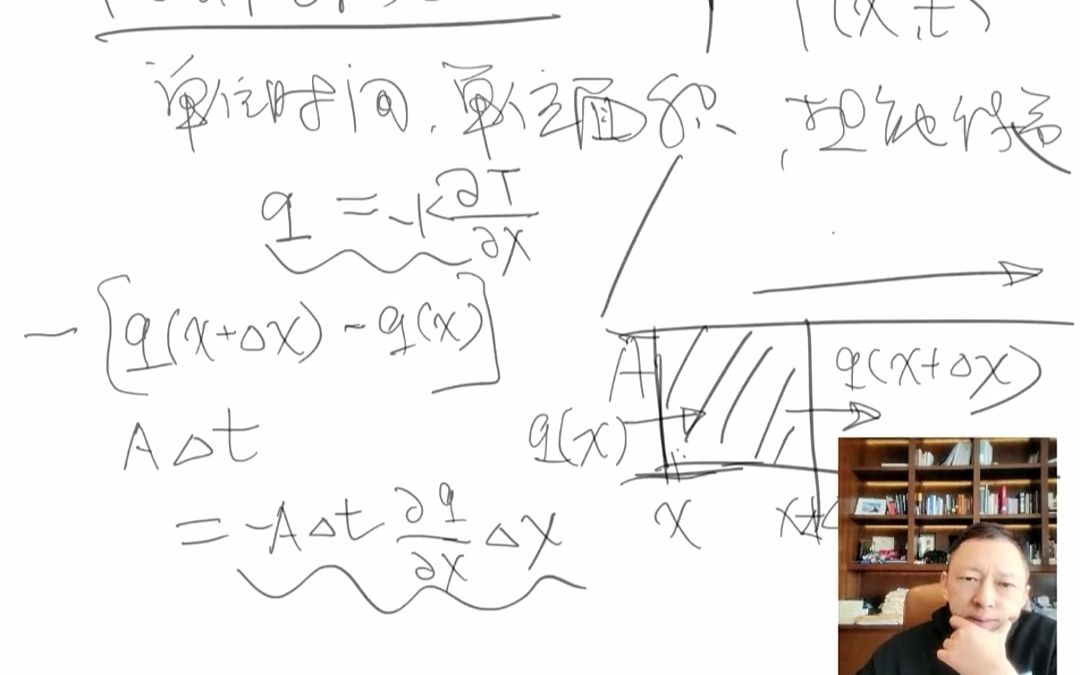 (x,t)
单位时间,单位面积,热能传递
q = -k ∂T/∂x
-[q(x+Δx)-q(x)]
AΔt
= -AΔt ∂q/∂x Δx
A
q(x)
q(x+Δx)
x